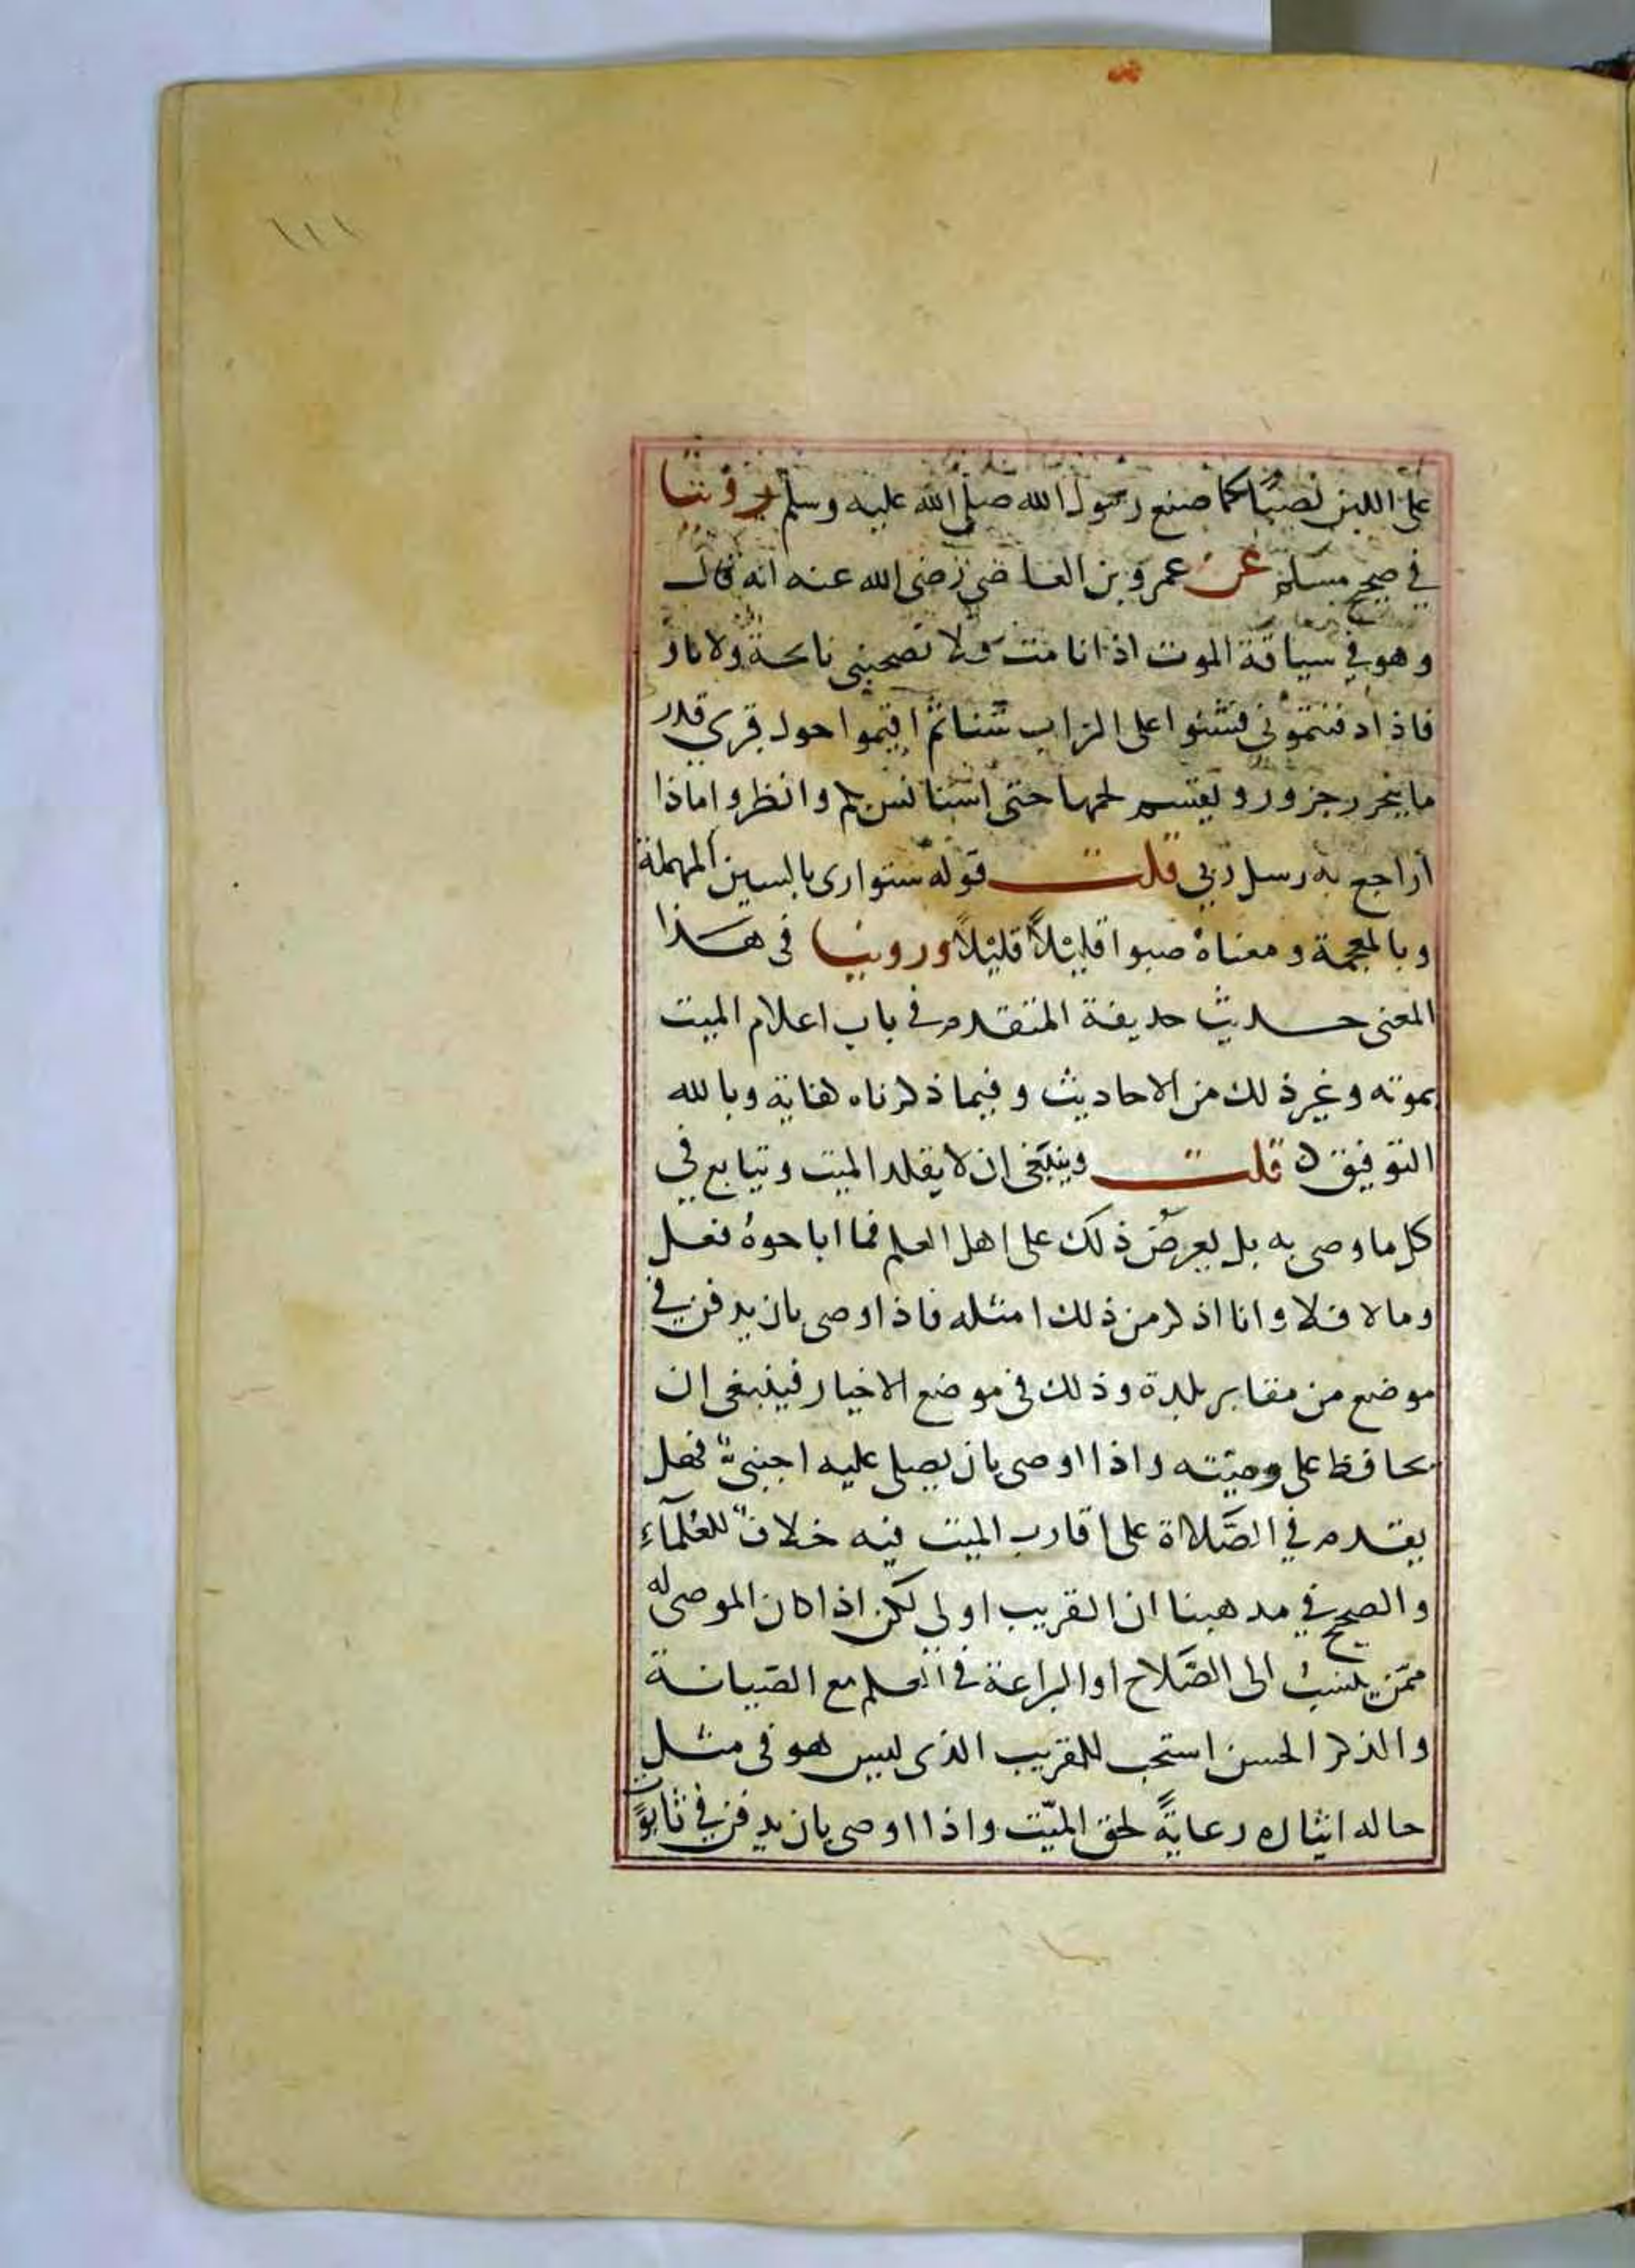 ١١١
على اللبن نصبا كما صنع رسول الله صلى الله عليه وسلم روينا
في صحيح مسلم عن عمرو بن العاصي رضي الله عنه انه قال
وهو في سياقة الموت اذا انا مت فلا تصحبني نائحة ولا نار
فاذا دفنتموني فشنوا على التراب شنا ثم اقيموا حول قبري قدر
ما ينحر جزور ويقسم لحمها حتى استانس بكم وانظروا ماذا
اراجع به رسل ربي قلت قوله شنوا روى بالسين المهملة
وبالمعجمة ومعناه صبوا قليلاً قليلاً وروينا في هذا
المعنى حديث حذيفة المتقدم في باب اعلام الميت
بموته وغير ذلك من الاحاديث وفيما ذكرناه كفاية وبالله
التوفيق ه قلت وينبغي ان لا يقلد الميت ويتابع في
كل ما وصى به بل يعرض ذلك على اهل العلم فما اباحوه فعل
وما لا فلا وانا اذكر من ذلك امثله فاذا اوصى بان يدفن في
موضع من مقابر بلدة وذلك في موضع الاخيار فينبغي ان
يحافظ على وصيته واذا اوصى بان يصلى عليه اجنبيٌّ فهل
يقدم في الصَّلاة على اقارب الميت فيه خلافٌ للعُلمآء
والصحيح في مذهبنا ان القريب اولى لكن اذا كان الموصى له
ممّن ينسبُ الى الصَّلاح او البراعة في العلم مع الصّيانة
والذكر الحسن استحب للقريب الذى ليس هو في مثل
حاله ايثاره رعايةً لحق الميّت واذا اوصى بان يدفن في تابوت